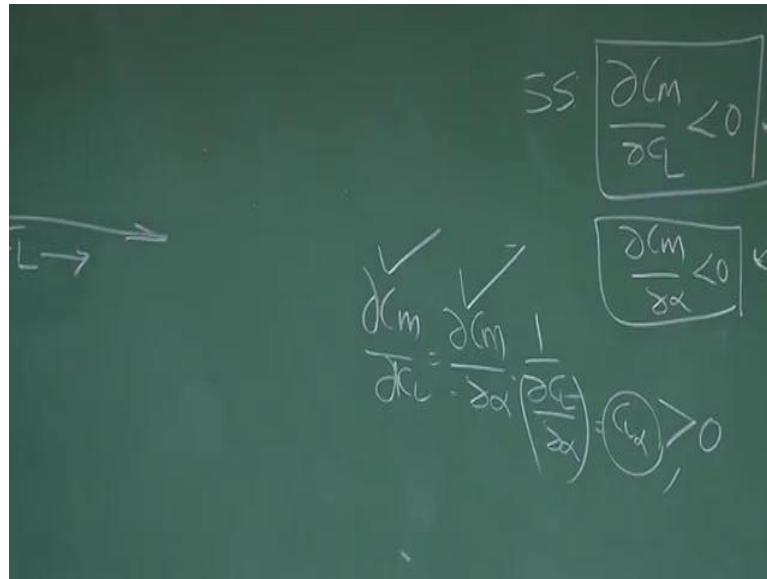 SS ∂Cm/∂CL < 0
CL →
∂Cm/∂α < 0
∂Cm/∂CL = ∂Cm/∂α · 1/(∂CL/∂α) = CLα > 0